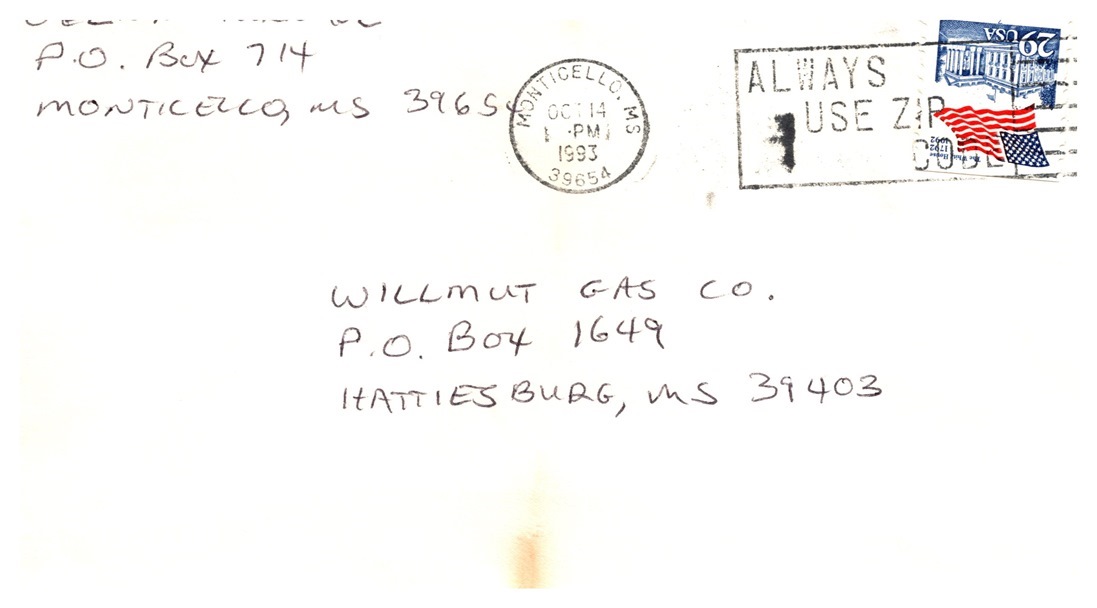 P.O. Box 714
MONTICELLO, MS 39654
MONTICELLO, MS
OCT 14
PM
1993
39654
ALWAYS
USE ZIP
CODE
29
USA
The White House
1792
1992
WILLMUT GAS CO.
P.O. Box 1649
HATTIESBURG, MS 39403